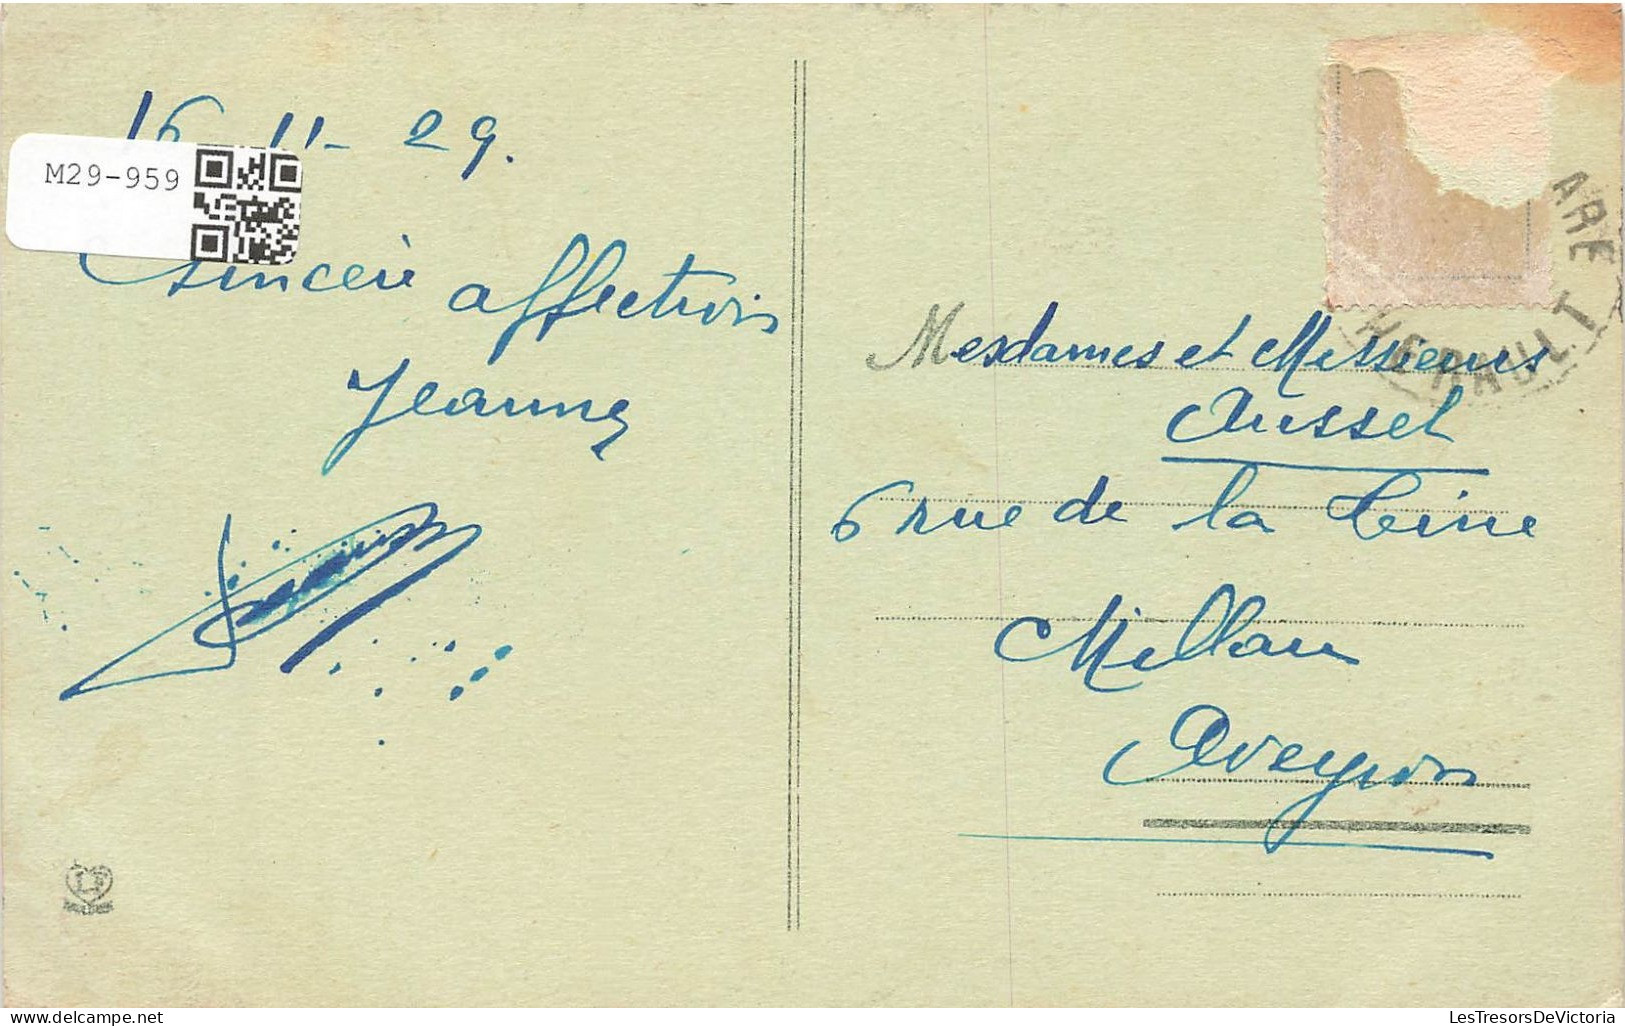 16 - 11 - 29.
M29-959
Sincère affection
Jeanne
ARE
HERAULT
Mesdames et Messieurs
Aussel
6 rue de la Cine
Millau
Aveyron
delcampe.net
LesTresorsDeVictoria